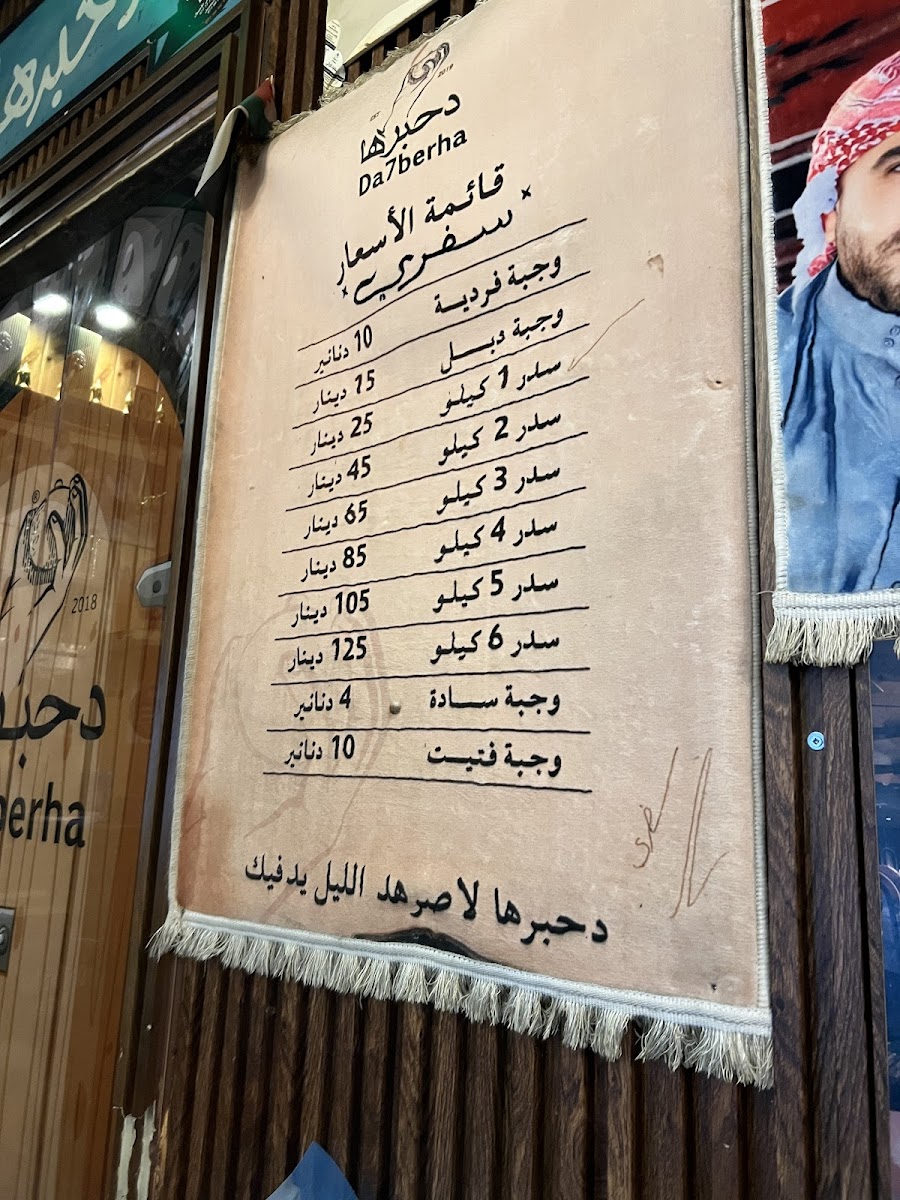 دحبرها
EST 2018
دحبرها
Da7berha
قائمة الأسعار
× سفري ×
وجبة فردية 10 دنانير
وجبة دبل 15 دينار
سدر 1 كيلو 25 دينار
سدر 2 كيلو 45 دينار
سدر 3 كيلو 65 دينار
سدر 4 كيلو 85 دينار
سدر 5 كيلو 105 دينار
سدر 6 كيلو 125 دينار
وجبة سادة 4 دنانير
وجبة فتيت 10 دنانير
دحبرها لاصرهد الليل يدفيك
2018
دحبـ
berha